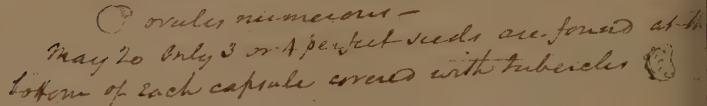 ovules numerous -
May 20 only 3 or 4 perfect seeds are found at the
bottom of each capsule covered with tubercles